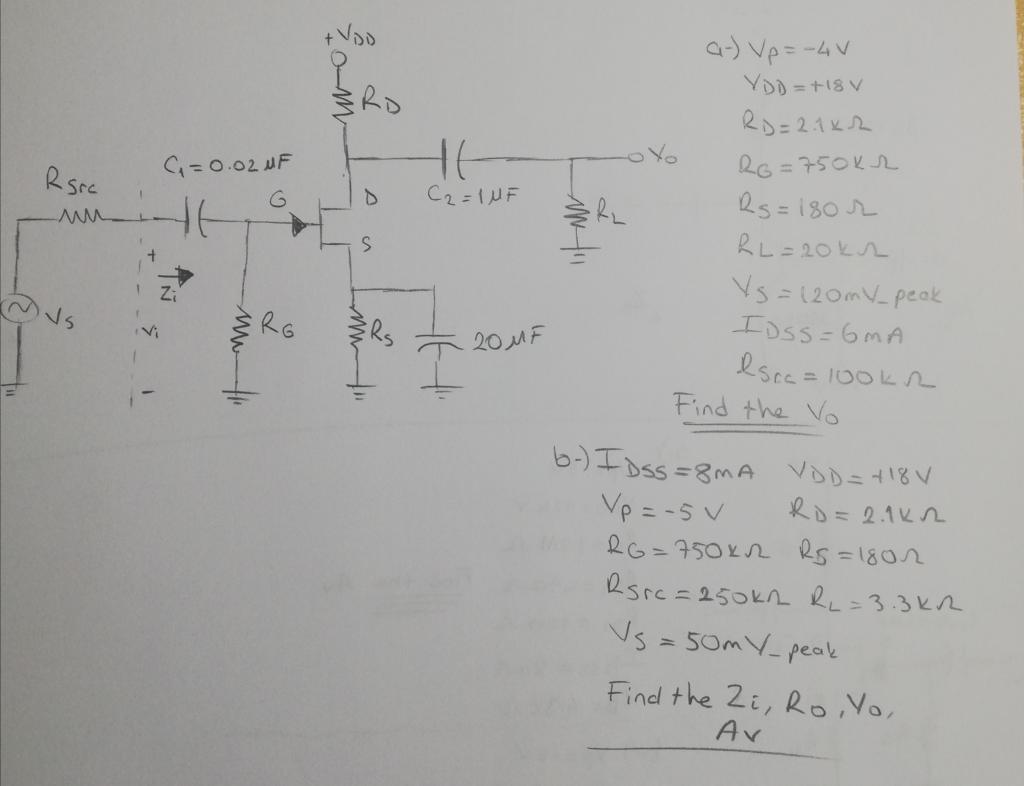 +VDD
RD
C1=0.02µF
RSrc
G
D
C2=1µF
Vo
RL
S
+
Zi
Vi
-
Vs
RG
RS
20µF
a-) Vp=-4V
VDD=+18V
RD=2.1kΩ
RG=750kΩ
RS=180Ω
RL=20kΩ
Vs=120mV_peak
IDSS=6mA
RSrc=100kΩ
Find the Vo
b-) IDSS=8mA VDD=+18V
Vp=-5V RD=2.1kΩ
RG=750kΩ RS=180Ω
Rsrc=250kΩ RL=3.3kΩ
Vs=50mV_peak
Find the Zi, Ro, Vo,
Av